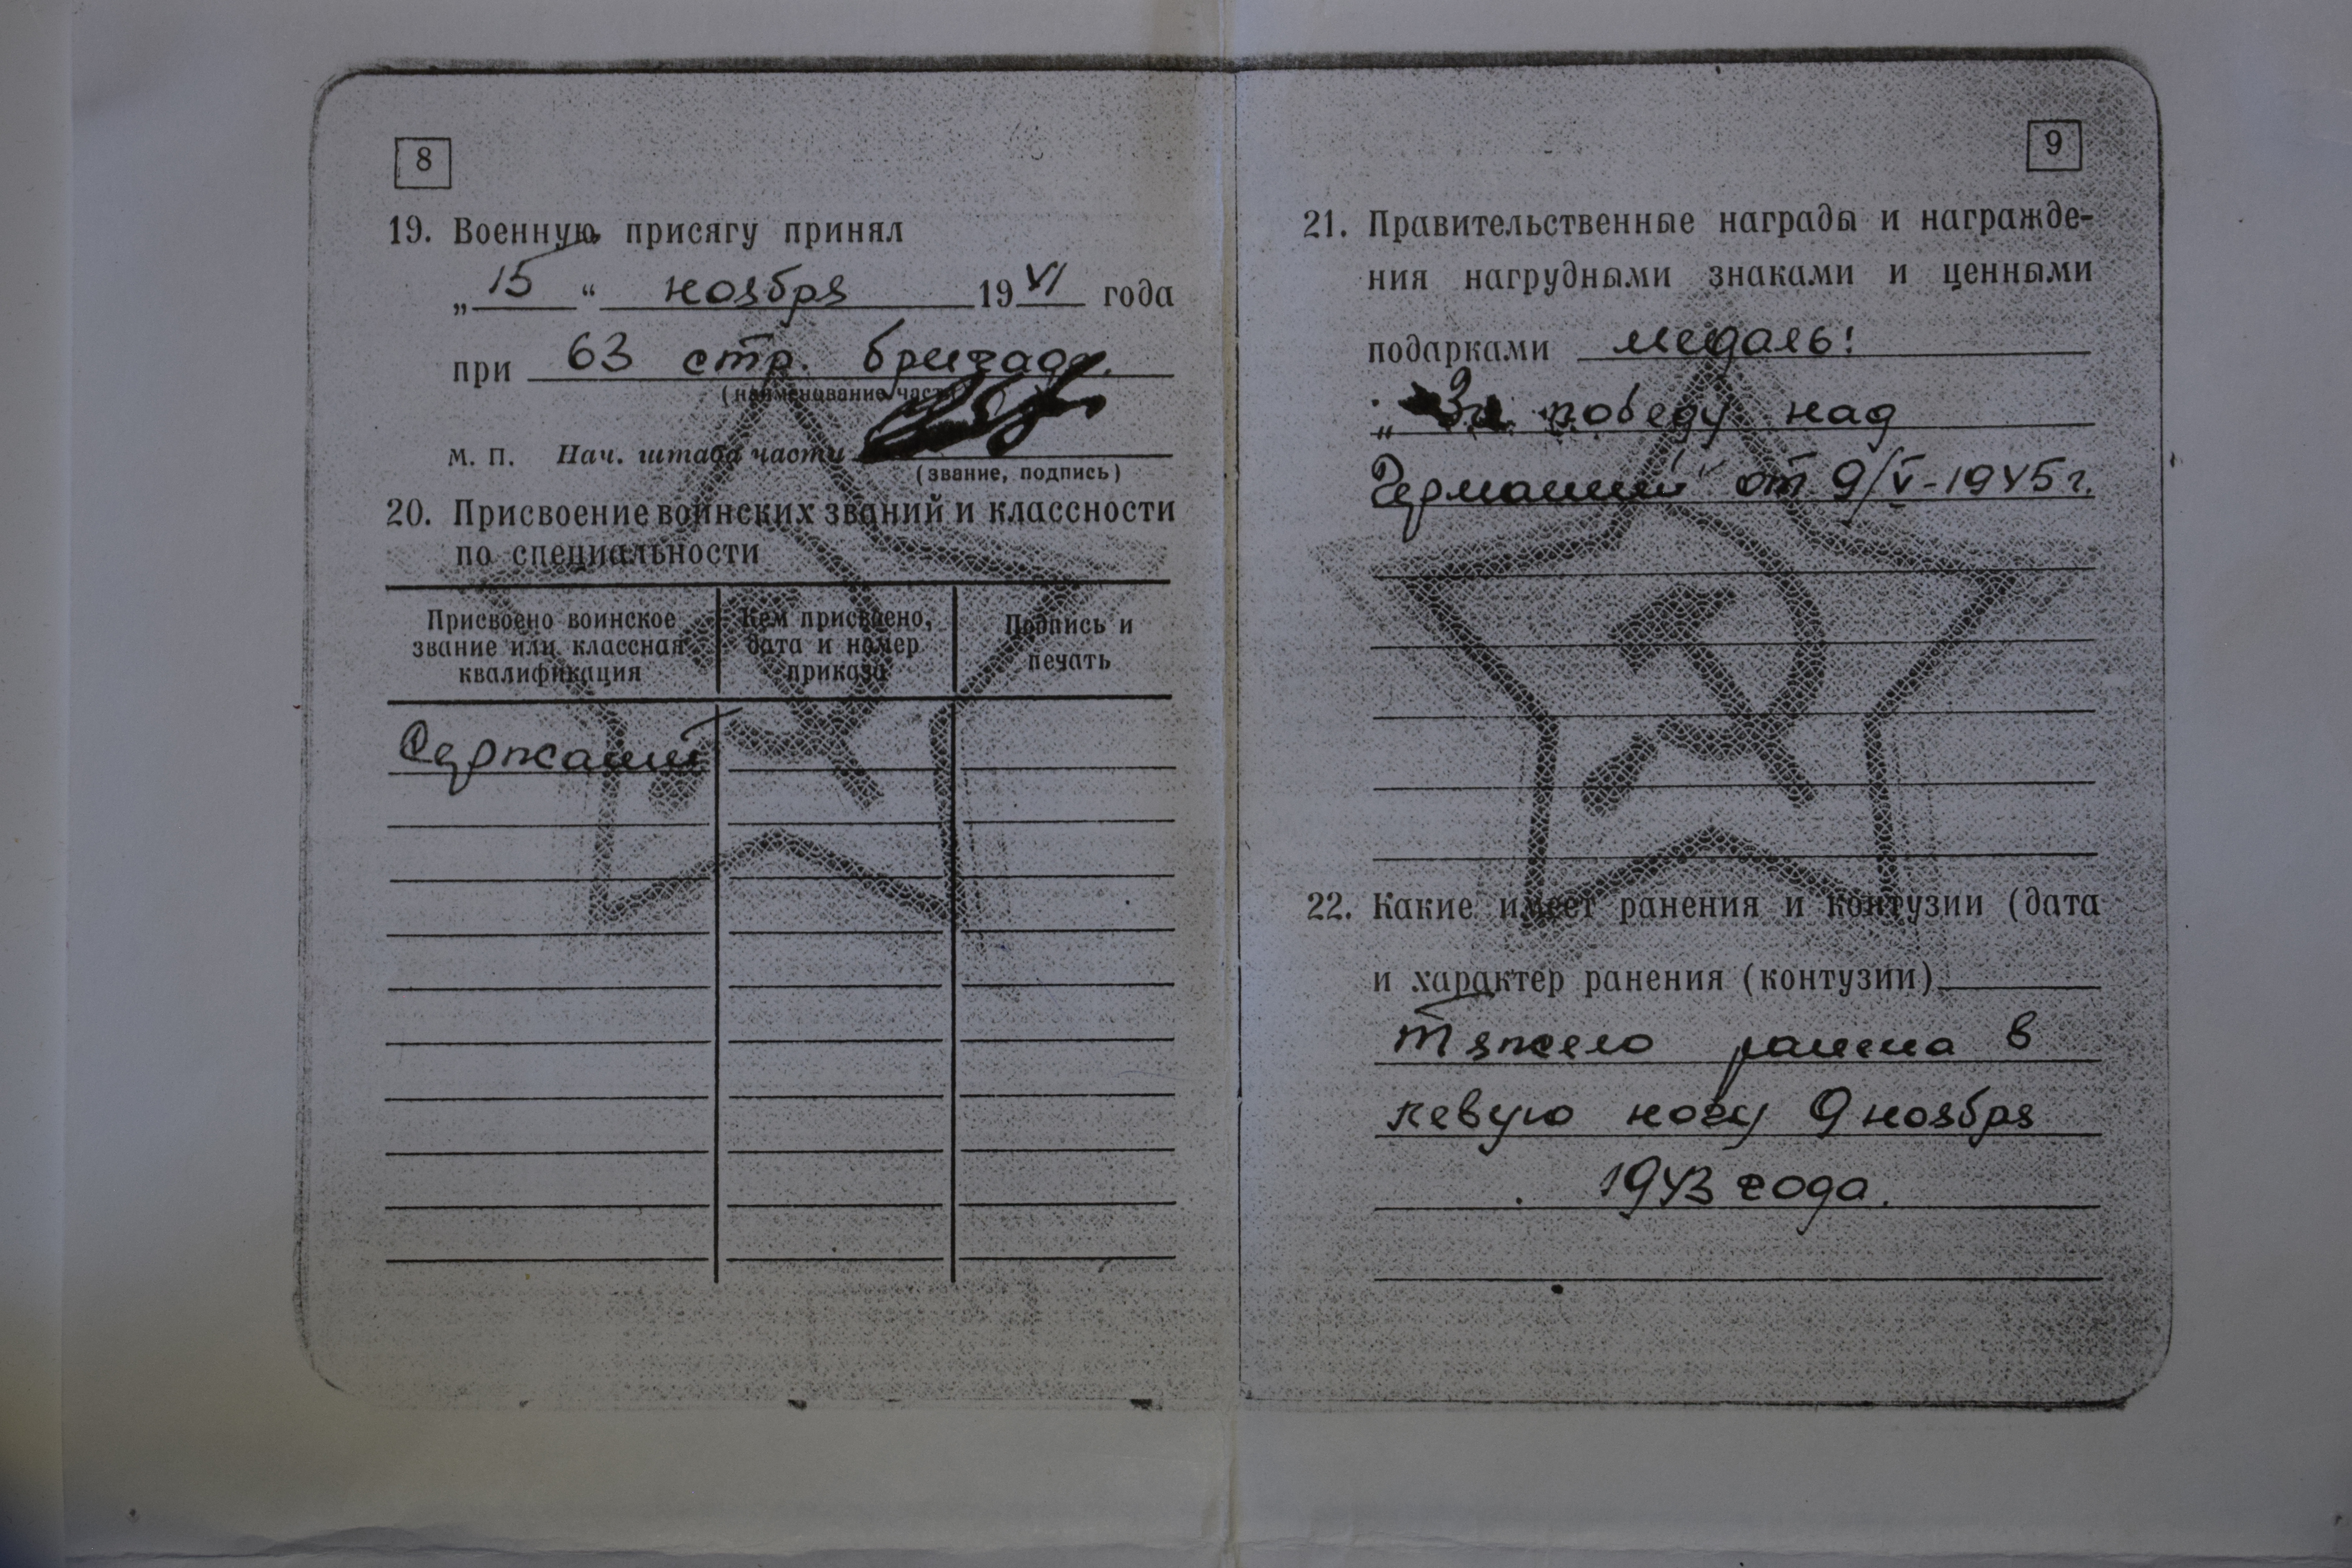 8
19. Военную присягу принял
„15“ ноября 1941 года
при 63 стр. бригаде.
(наименование части)
М. П. Нач. штаба части
(звание, подпись)
20. Присвоение воинских званий и классности
по специальности
Присвоено воинское
звание или классная
квалификация
Кем присвоено,
дата и номер
приказа
Подпись и
печать
Сержант
9
21. Правительственные награды и награжде-
ния нагрудными знаками и ценными
подарками медаль:
„За победу над
Германией“ от 9/V-1945г.
22. Какие имеет ранения и контузии (дата
и характер ранения (контузии)
тяжело ранена в
левую ногу 9 ноября
1943 года.